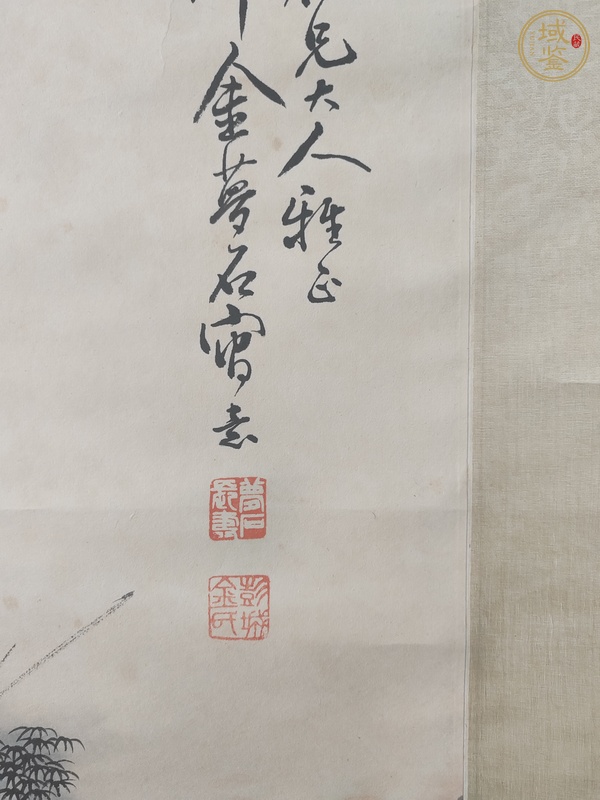 兄大人雅正
金夢石寫意
夢石
彭城
金氏
域鉴